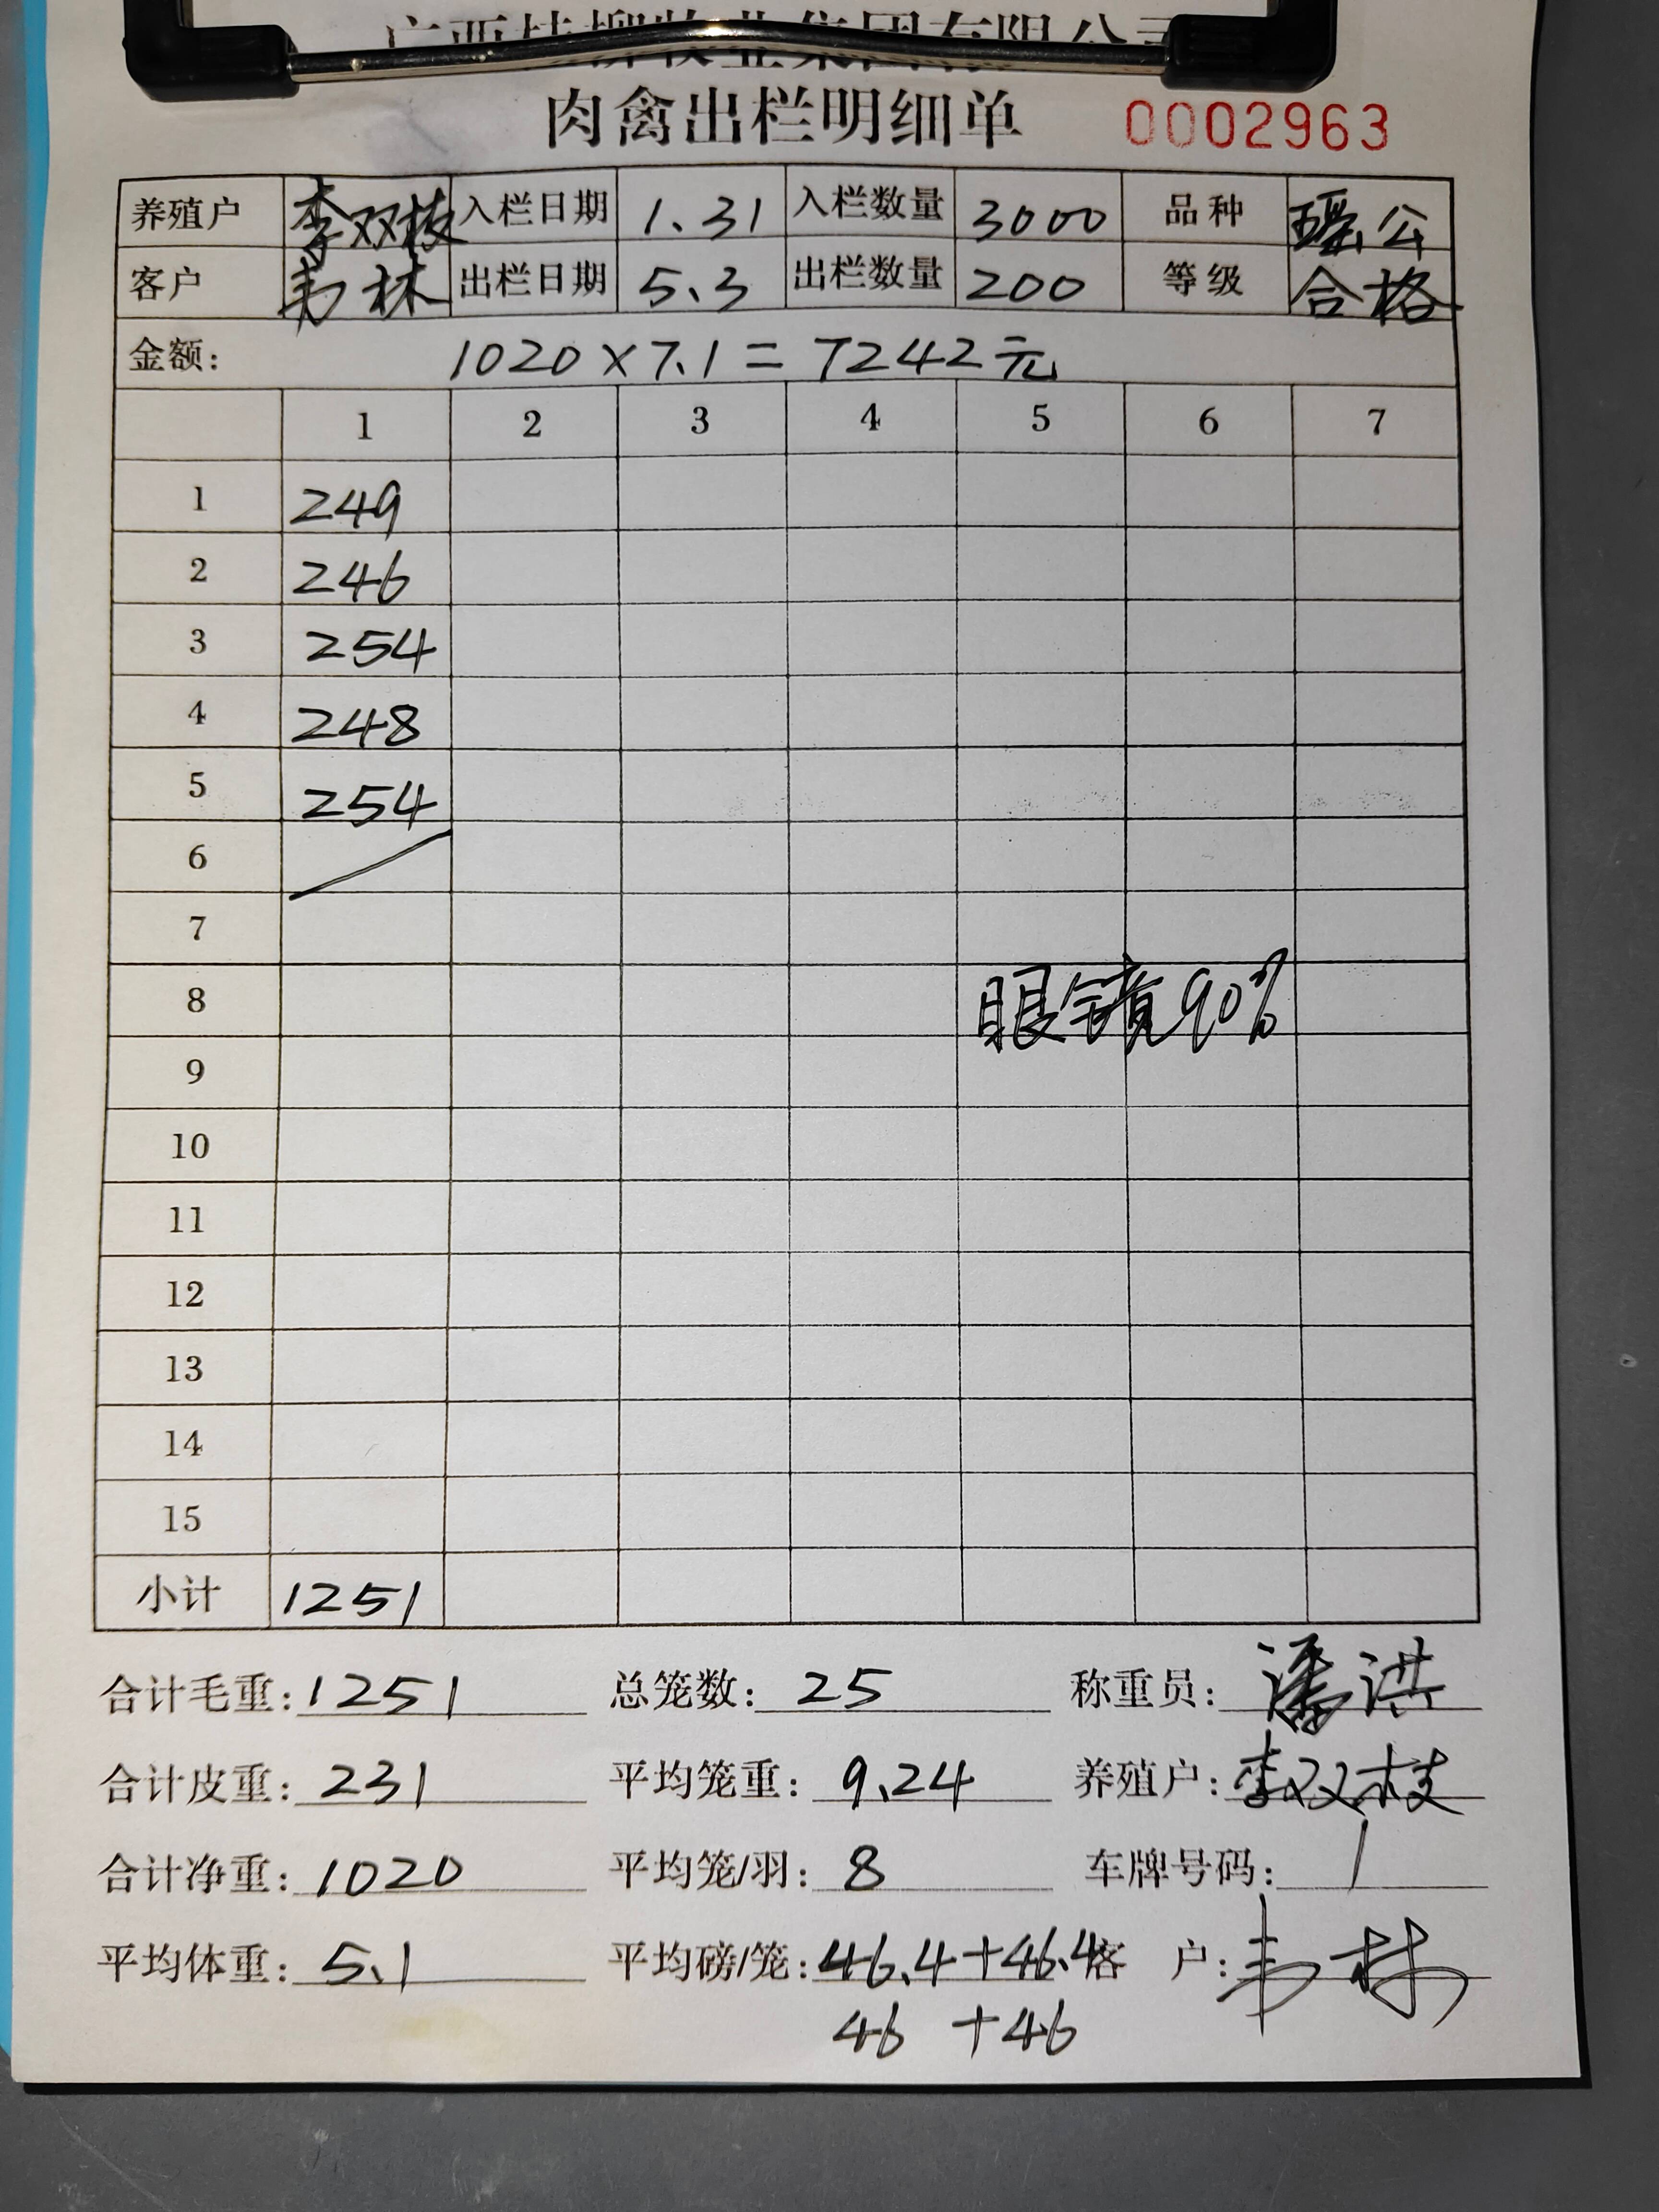 肉禽出栏明细单 0002963
养殖户 李双枝 入栏日期 1.31 入栏数量 3000 品种 瑶公
客户 韦林 出栏日期 5.3 出栏数量 200 等级 合格
金额: 1020×7.1=7242元
1 2 3 4 5 6 7
1 249
2 246
3 254
4 248
5 254
6
7
8 眼镜90%
9
10
11
12
13
14
15
小计 1251
合计毛重: 1251 总笼数: 25 称重员: 潘洪
合计皮重: 231 平均笼重: 9.24 养殖户: 李双枝
合计净重: 1020 平均笼/羽: 8 车牌号码: /
平均体重: 5.1 平均磅/笼: 46.4+46.4 客 户: 韦林
46 +46